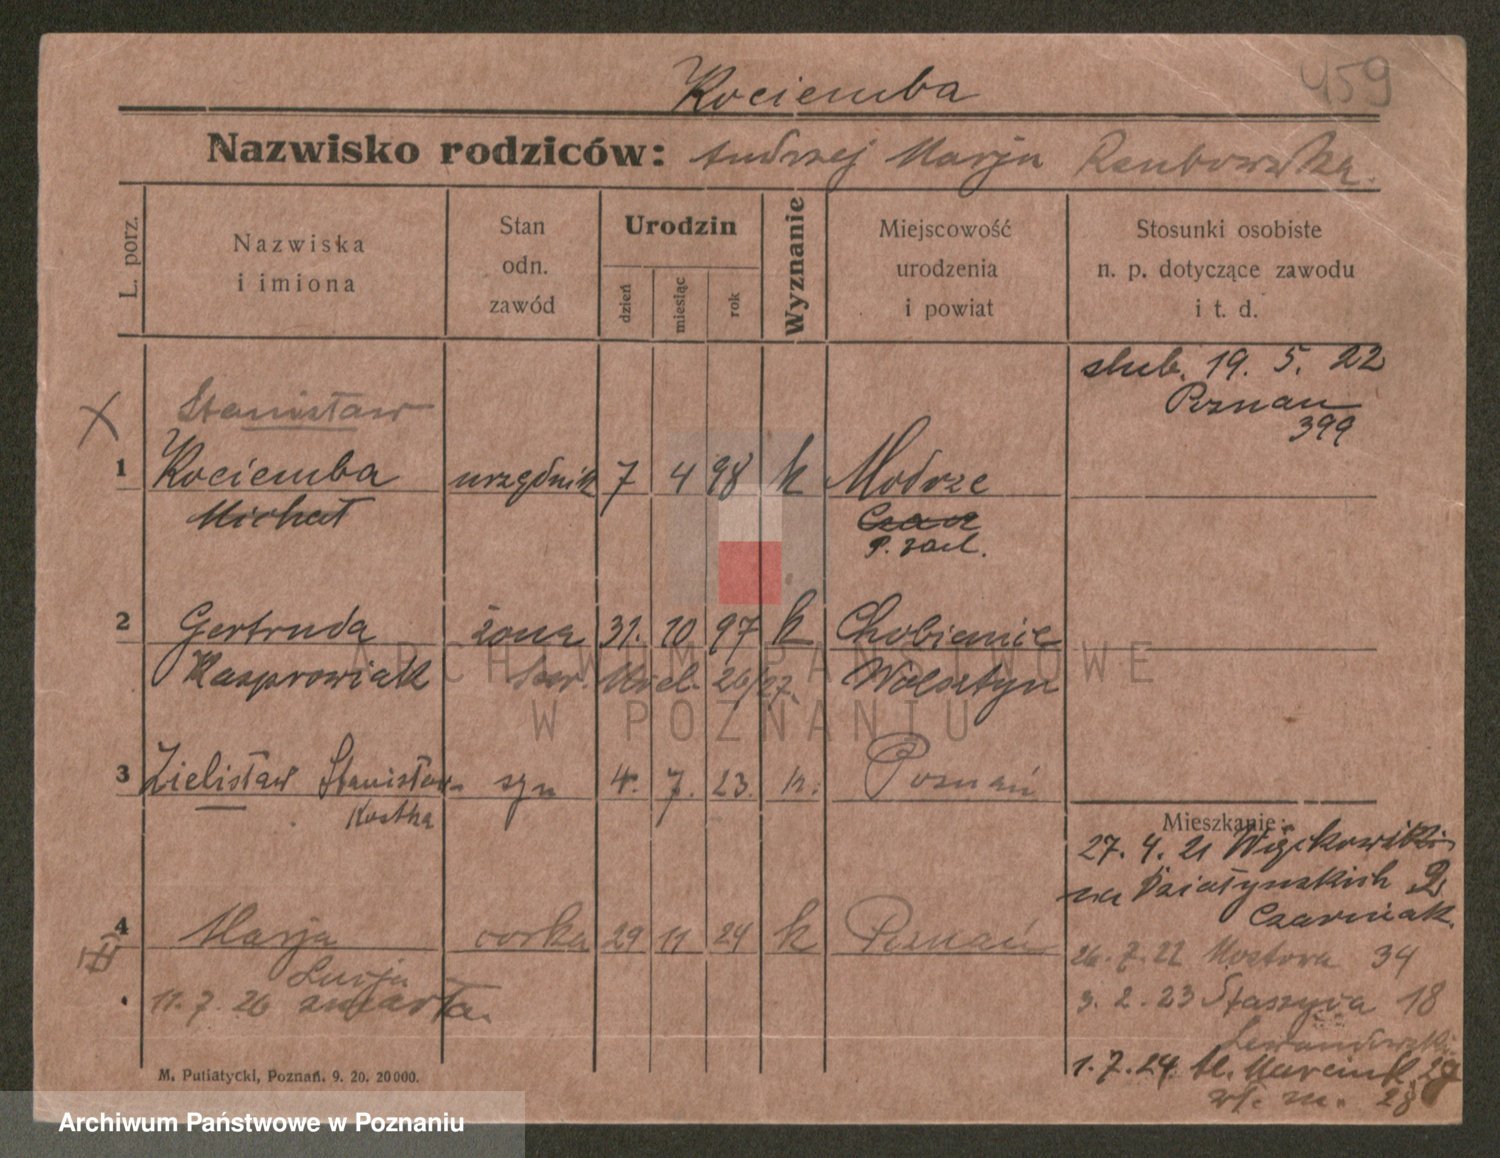 459
Kociemba
Nazwisko rodziców: Andrzej Marja
L. porz.
Nazwiska i imiona
Stan odn. zawód
Urodzin
dzień
miesiąc
rok
Wyznanie
Miejscowość urodzenia i powiat
Stosunki osobiste n. p. dotyczące zawodu i t. d.
ślub. 19. 5. 22
Poznań
399
X
Stanisław
1 Kociemba urzędnik 7 4 98 k Modrze
Michał
P. zach.
2 Gertruda żona 31. 10 97 k Chobienice
Kasprowiak 26/27. Wolsztyn
3 Zielisław Stanisław syn 4. 7. 23. k. Poznań
Kostka
Mieszkanie:
27. 4. 21 Więckowicki
Działyńskich 2
Czarniak
4 Marja córka 29 11 24 k Poznań
Łucja
11. 7. 26 zmarła.
26. 7. 22 Mostowa 34
3. 2. 23 Staszyca 18
Lewandowski
1. 7. 24 św. Marcink. 27
28
M. Putiatycki, Poznań. 9. 20. 20000.
ARCHIWUM PAŃSTWOWE
W POZNANIU
Archiwum Państwowe w Poznaniu